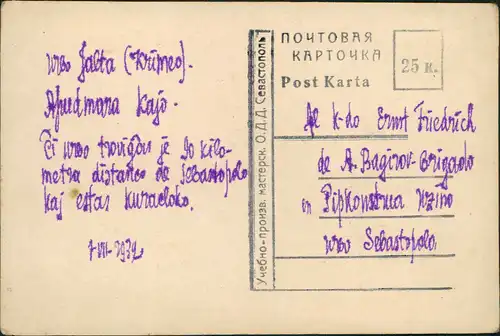 urbo Jalta (Krimeo).
Apudmara Kajo.
Ĉi urbo troviĝas je 90 kilo-
metra distanco de Sebastopolo
kaj estas kuracloko.
1-VII-1932
ПОЧТОВАЯ
КАРТОЧКА
Post Karta
25 к.
Учебно-произв. мастерск. О.Д.Д. Севастополь
Al k-do Ernst Friedrich
de A. Bagirov-Brigado
en
urbo Sebastopolo.